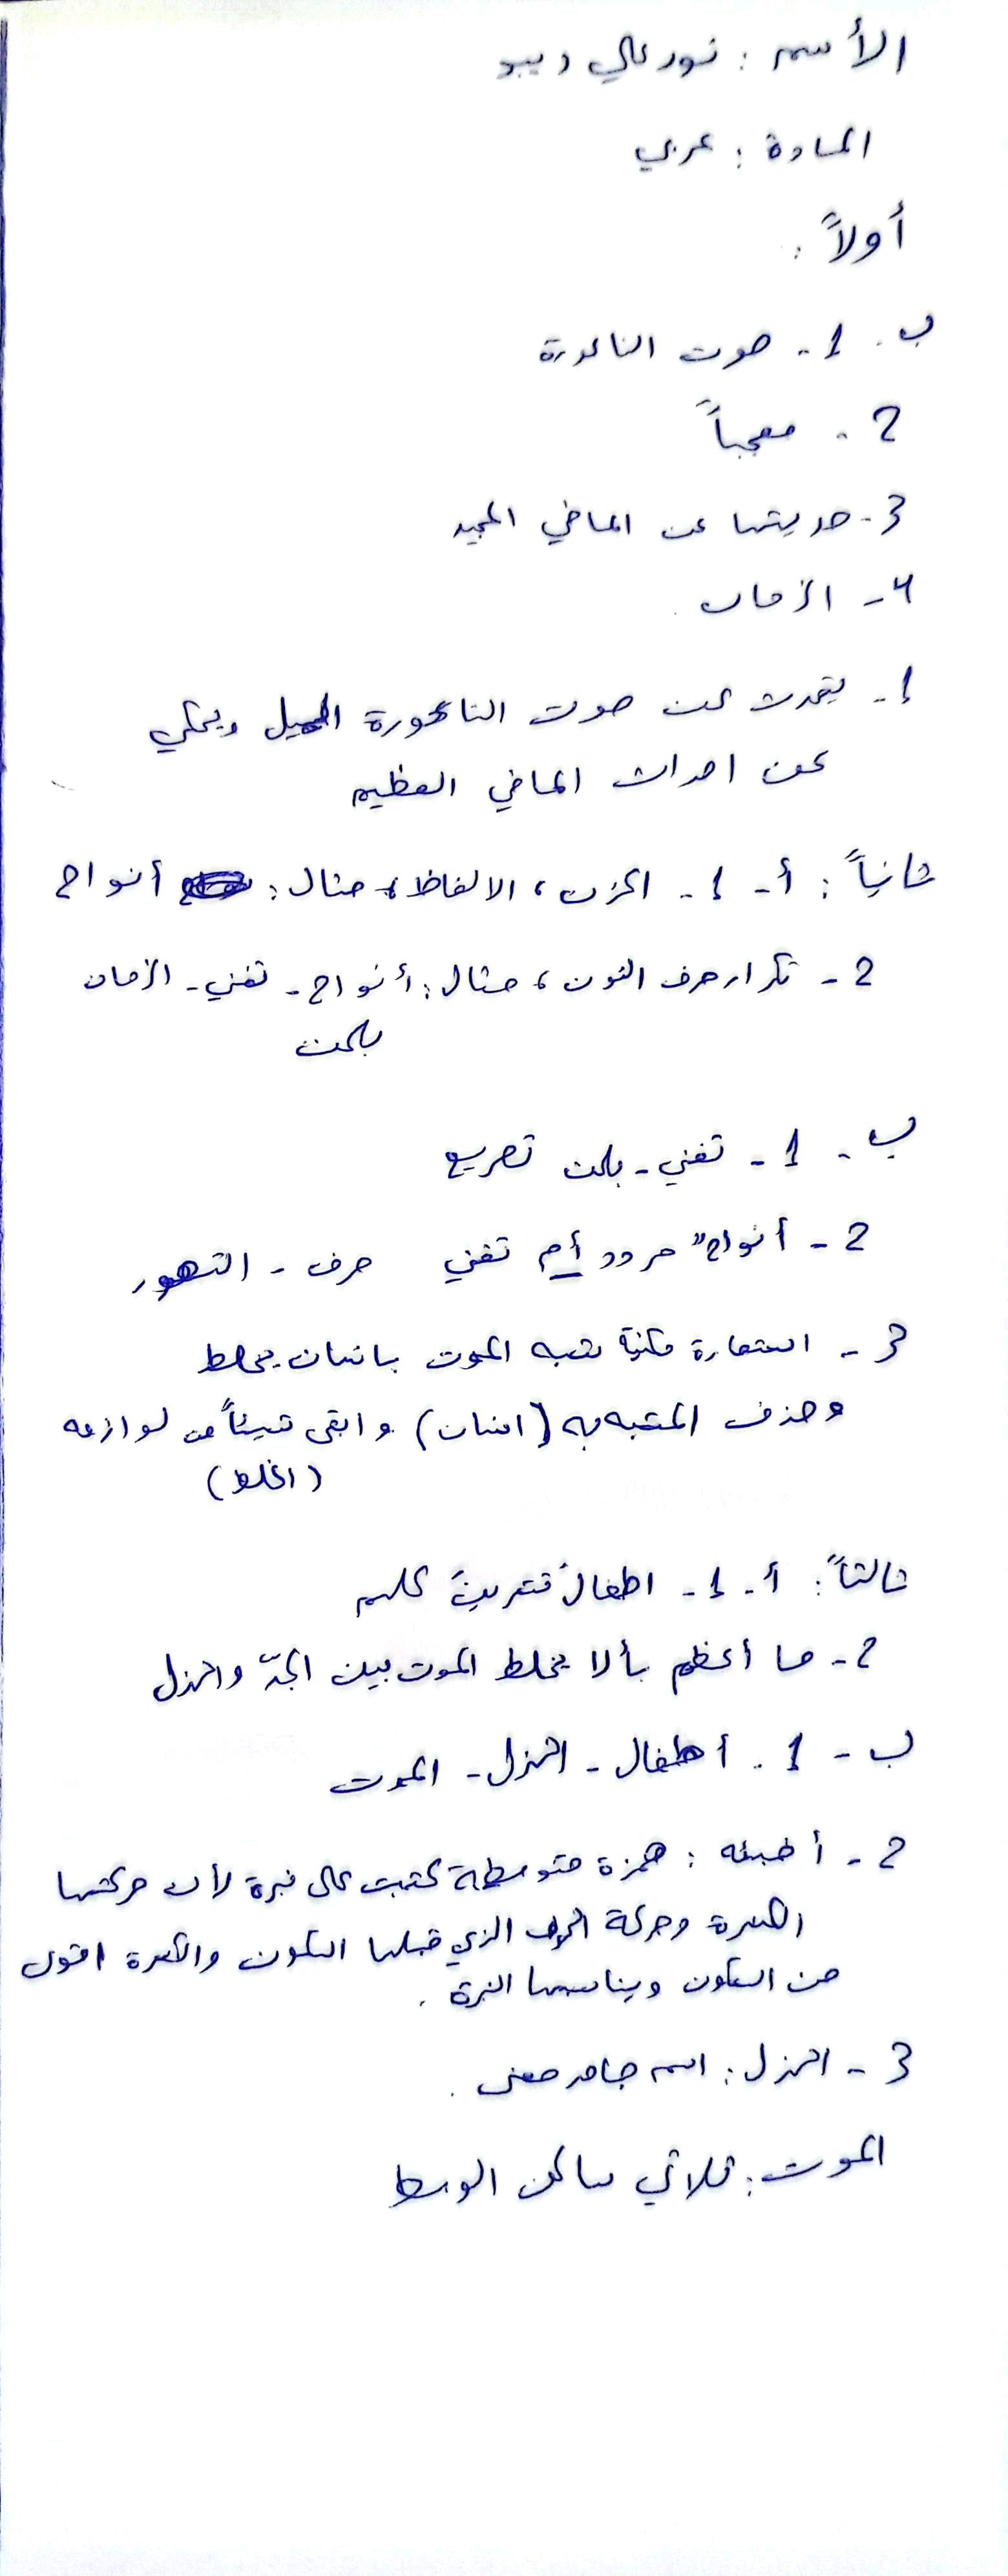 الأسم : نور علي ديبو
المادة : عربي
أولاً :
ب . 1 - صوت الناعورة
2 - معجباً
3 - حديثها عن الماضي المجيد
4 - الزمان .
1 - يتحدث عن صوت الناعورة الجميل ويحكي
عن احداث الماضي العظيم
ثانياً : أ - 1 - الحزن ، الالفاظ ، مثال : أنواح
2 - تكرار حرف النون ، مثال : أنواح - تغني - الزمان
بلحن
ب - 1 - تغني - بلحن تصريع
2 - أنواح" مردود أم تغني حرف - التصور
3 - استعارة مكنية شبه الموت بانسان يخلط
وحذف المشبه به (انسان) وابقى شيئاً من لوازمه
(الخلط)
ثالثاً : أ - 1 - اطفال عليهم
2 - ما أعظم بألا يخلط الموت بين الجدّ والهزل
ب - 1 - أطفال - الهزل - الموت
2 - أفئدة : همزة متوسطة كتبت على نبرة لأن حركتها
الكسرة وحركة الحرف الذي قبلها السكون والكسرة اقوى
من السكون ويناسبها النبرة .
3 - الهزل : اسم جامد معنى .
الموت : ثلاثي ساكن الوسط